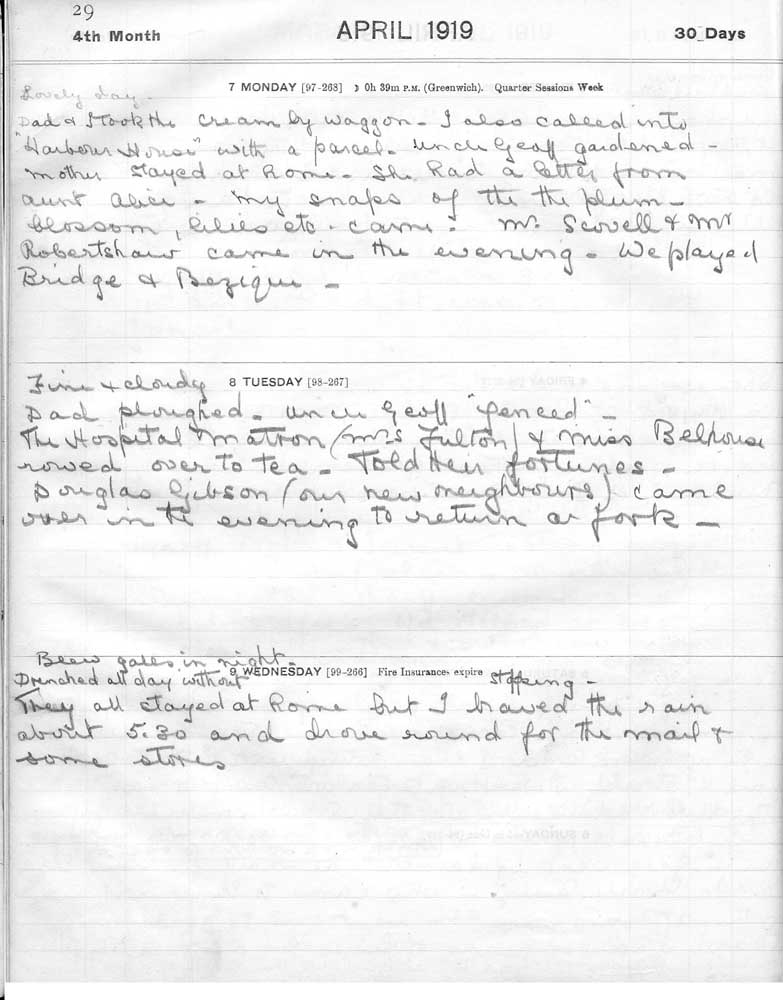 29
4th Month APRIL 1919 30 Days
7 MONDAY [97-268) ☽ 0h 39m P.M. (Greenwich). Quarter Sessions Week
Lovely day -
Dad & I took the cream by waggon - I also called into
"Harbour House" with a parcel. Uncle Geoff gardened -
Mother stayed at home - She had a letter from
aunt Alice - my snaps of the the plum -
blossom, lilies etc - came - Mr. Scovell & Mr
Robertshaw came in the evening - We played
Bridge & Bezique -
8 TUESDAY [98-267]
Fine & cloudy
Dad ploughed - Uncle Geoff "fenced" -
The Hospital Matron (Mrs Fulton) & Miss Belhouse
rowed over to tea - Told their fortunes -
Douglas Gibson (our new neighbours) came
over in the evening to return a fork -
Blew gales in night -
9 WEDNESDAY [99-266] Fire Insurances expire
Drenched all day without stopping -
They all stayed at home but I braved the rain
about 5.30 and drove round for the mail &
some stores